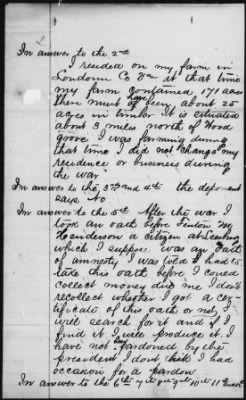 In answer to the 2nd
I resided on my farm in
Loudoun Co Va at that time
my farm contained 171 acres
there must have being about 25
acres in timber it is situated
about 3 miles north of Wood
grove I was farming during
that time I did not change my
residence or business during
the war
In answer to the 3rd and 4th the deponent
says No
In answer to the 5th After the war I
took an oath before Fenton M
Henderson a citizen at Leesburg
which I suppose was an oath
of amnesty I was told I had to
take this oath before I could
collect money due me I don't
recollect whether I got a cer-
tificate of this oath or not, I
will search for it and if I
find it I will produce it, I
have not been pardoned by the
president I dont think I had
occasion for a pardon
In answer to the 6th 7th 8th 9th 10th 11